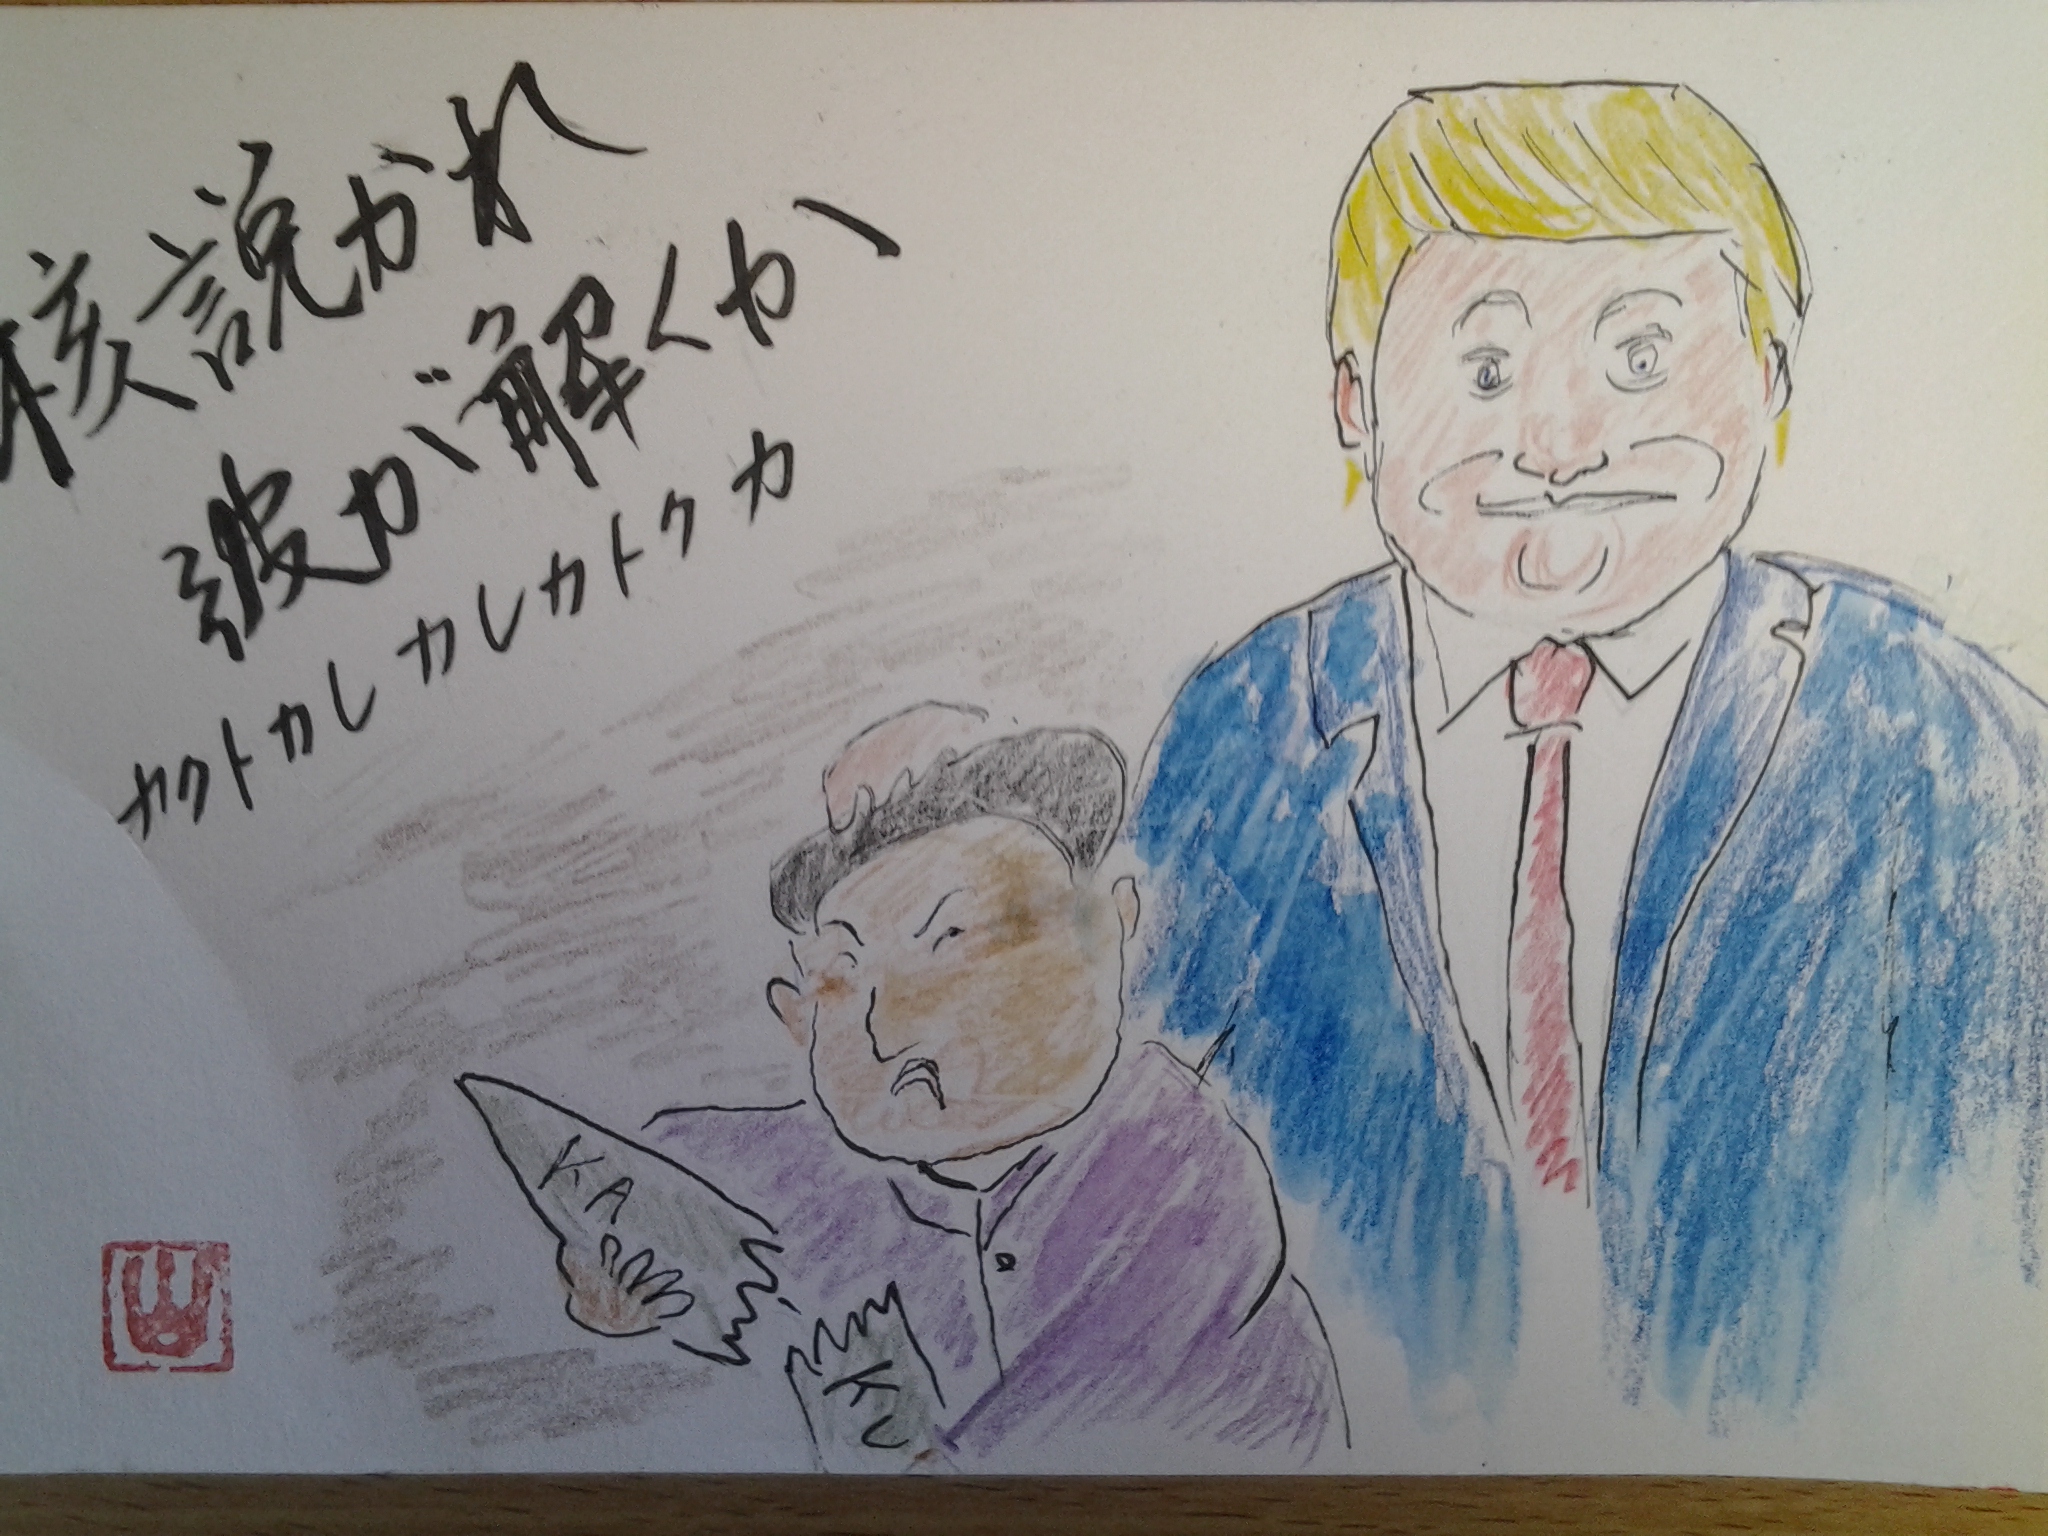 核説かれ
彼が解くか
カクトカレカレカトクカ
KA
KU